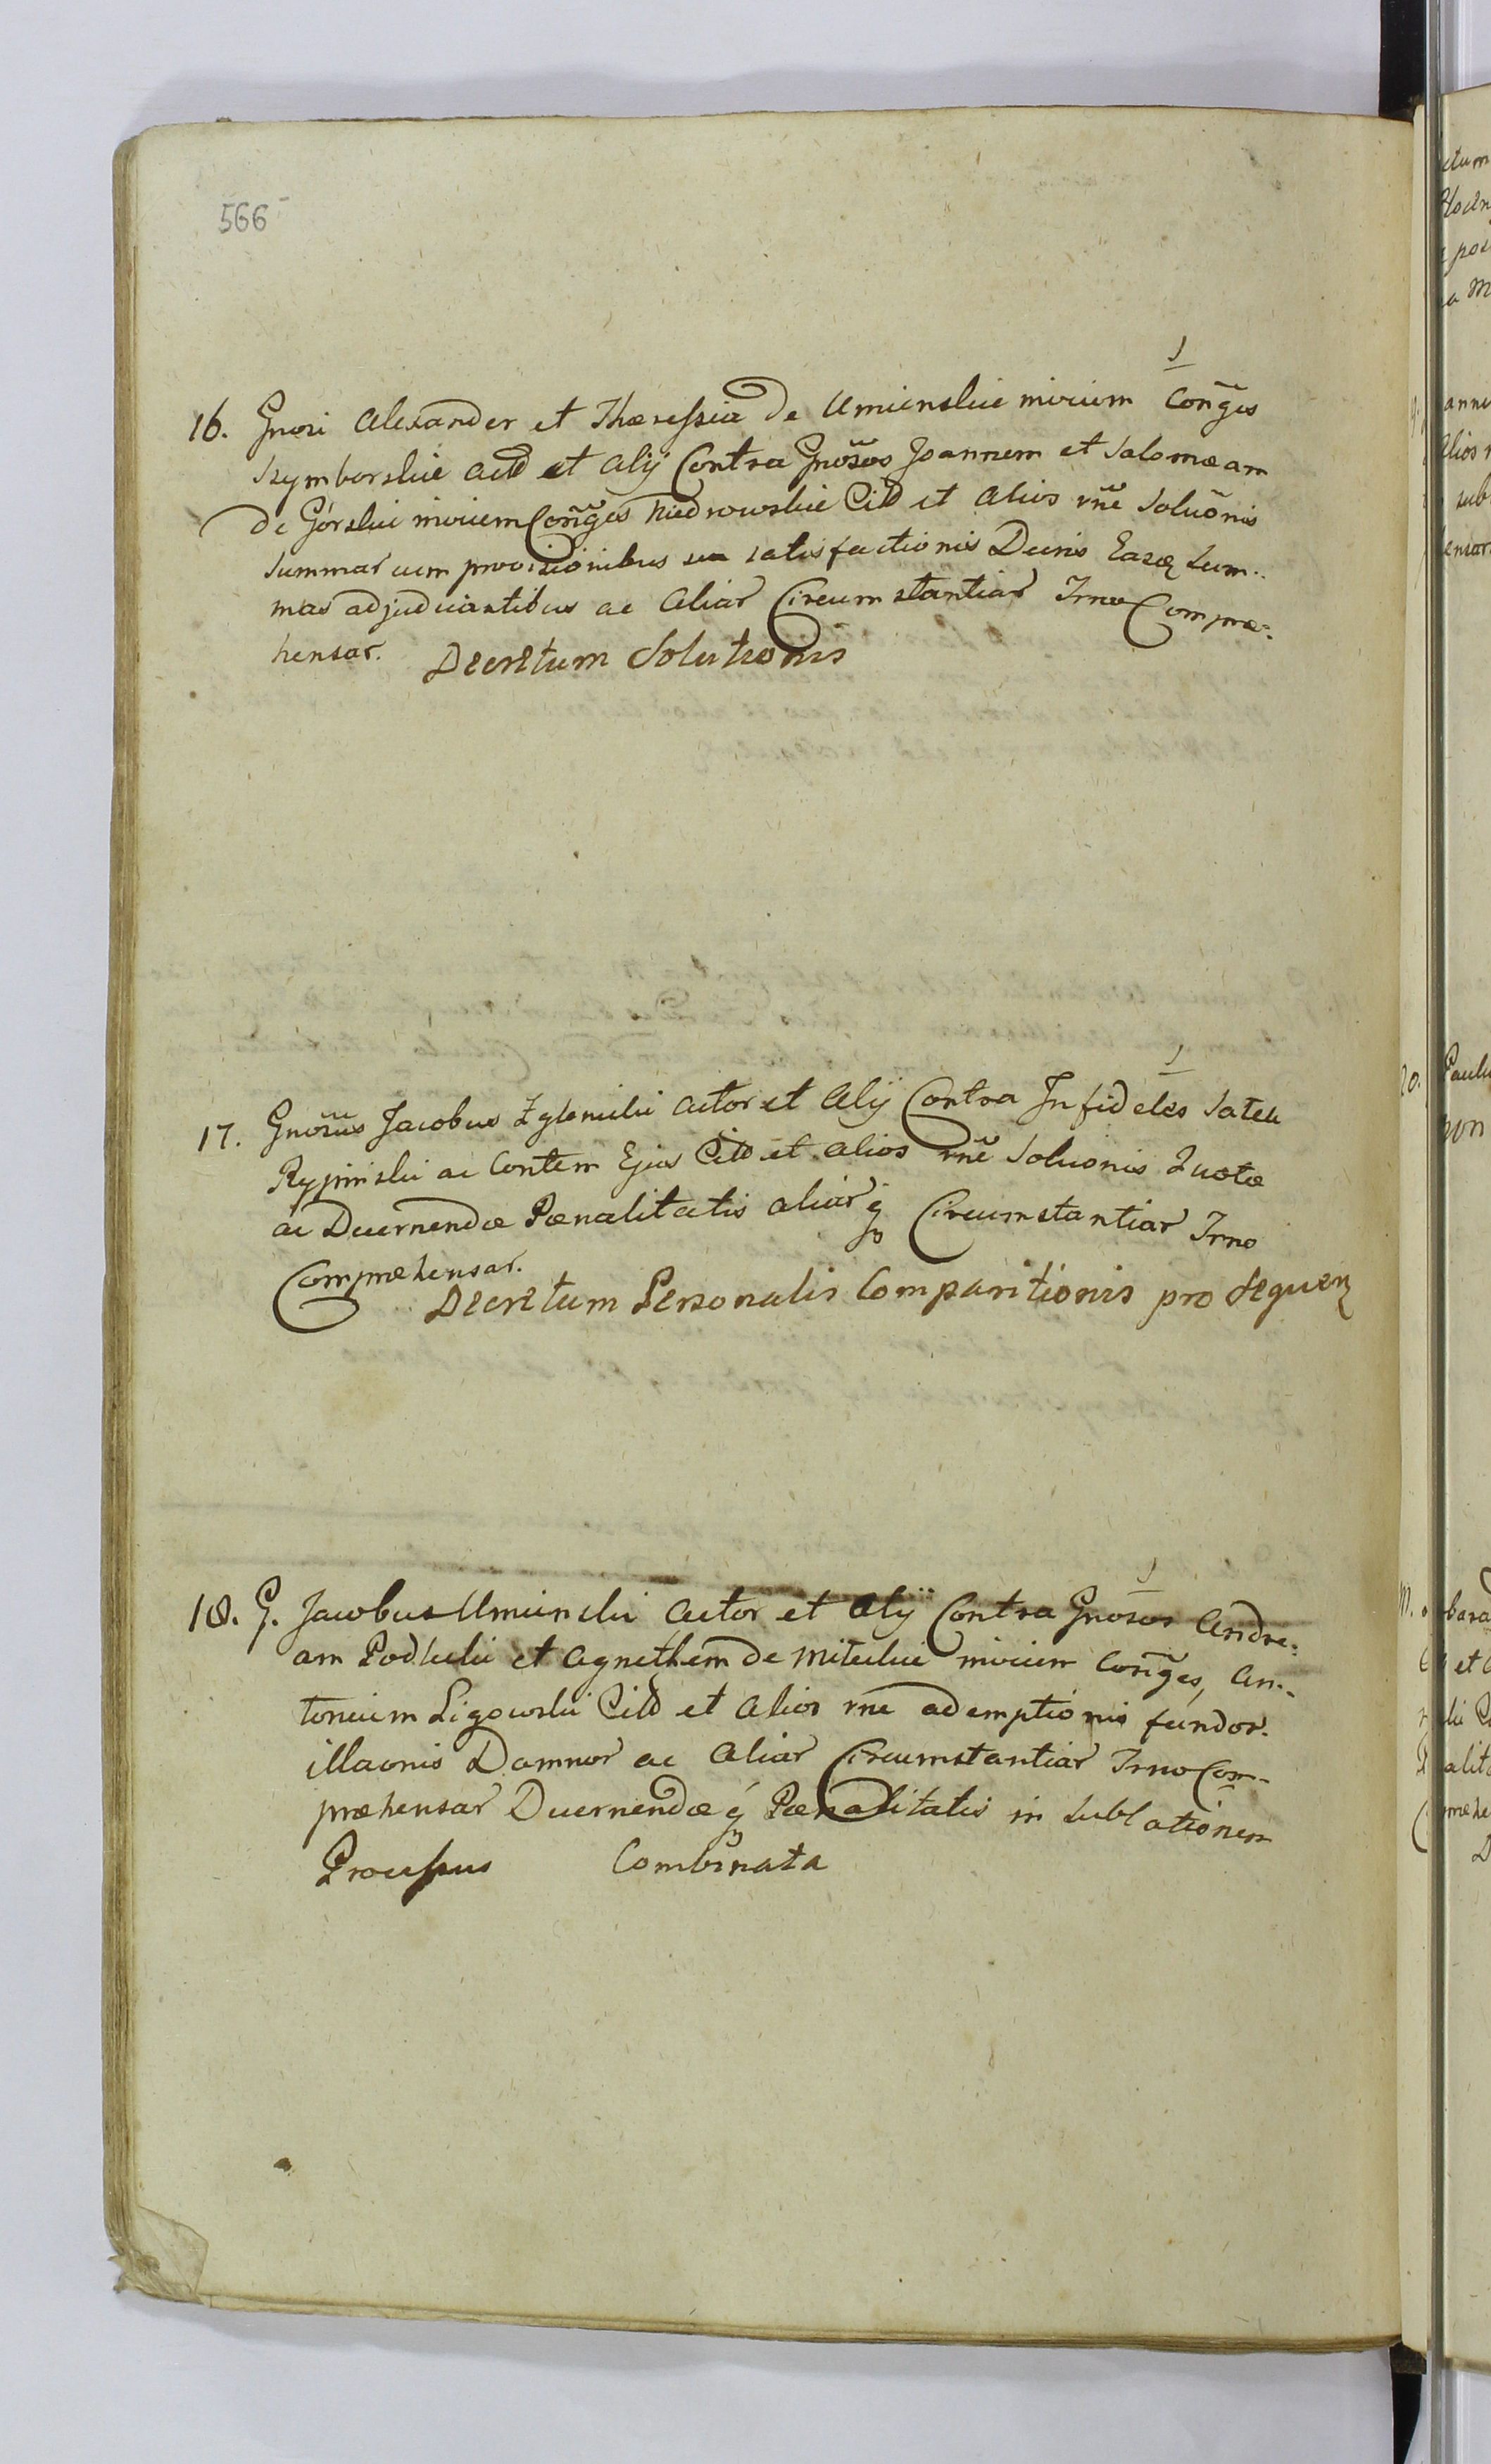 566
16. Gnosi Alexander et Theressia de Umienskie mivicem Conges
Szymborskie Act et Alij Contra Gnosos Joannem et Salomæam
de Górskie mivicem Conges Niedrowskie Citt et Alios rne Soluonis
Summar cum provisionibus satisfactionis Decris Easq Sum-
mas adjudicantibus ac Aliar Circumstantiar Irno Compræ-
hensar. Decretum Solutionis
17. Gnosus Jacobus Zglenicki Actor et Alij Contra Infideles
Rypinski ac Contem Ejus Citt et Alios rne Soluonis Quotæ
ac Decernendæ Pænalitatis aliar q Circumstantiar Irno
Compræhensar.
Decretum Personalis Comparitionis pro sequen
18. G. Jacobus Umienski Actor et Alij Contra Gnosos Andre-
am Podleski et Agnethem de mivicem Conges, An-
tonium Ligowski Citt et Alios rne ademptionis fundor.
illaonis Damnor ac Aliar Circumstantiar Irno Com-
præhensar Decernendæ q Pænalitatis in sublationem
Processus Combinata